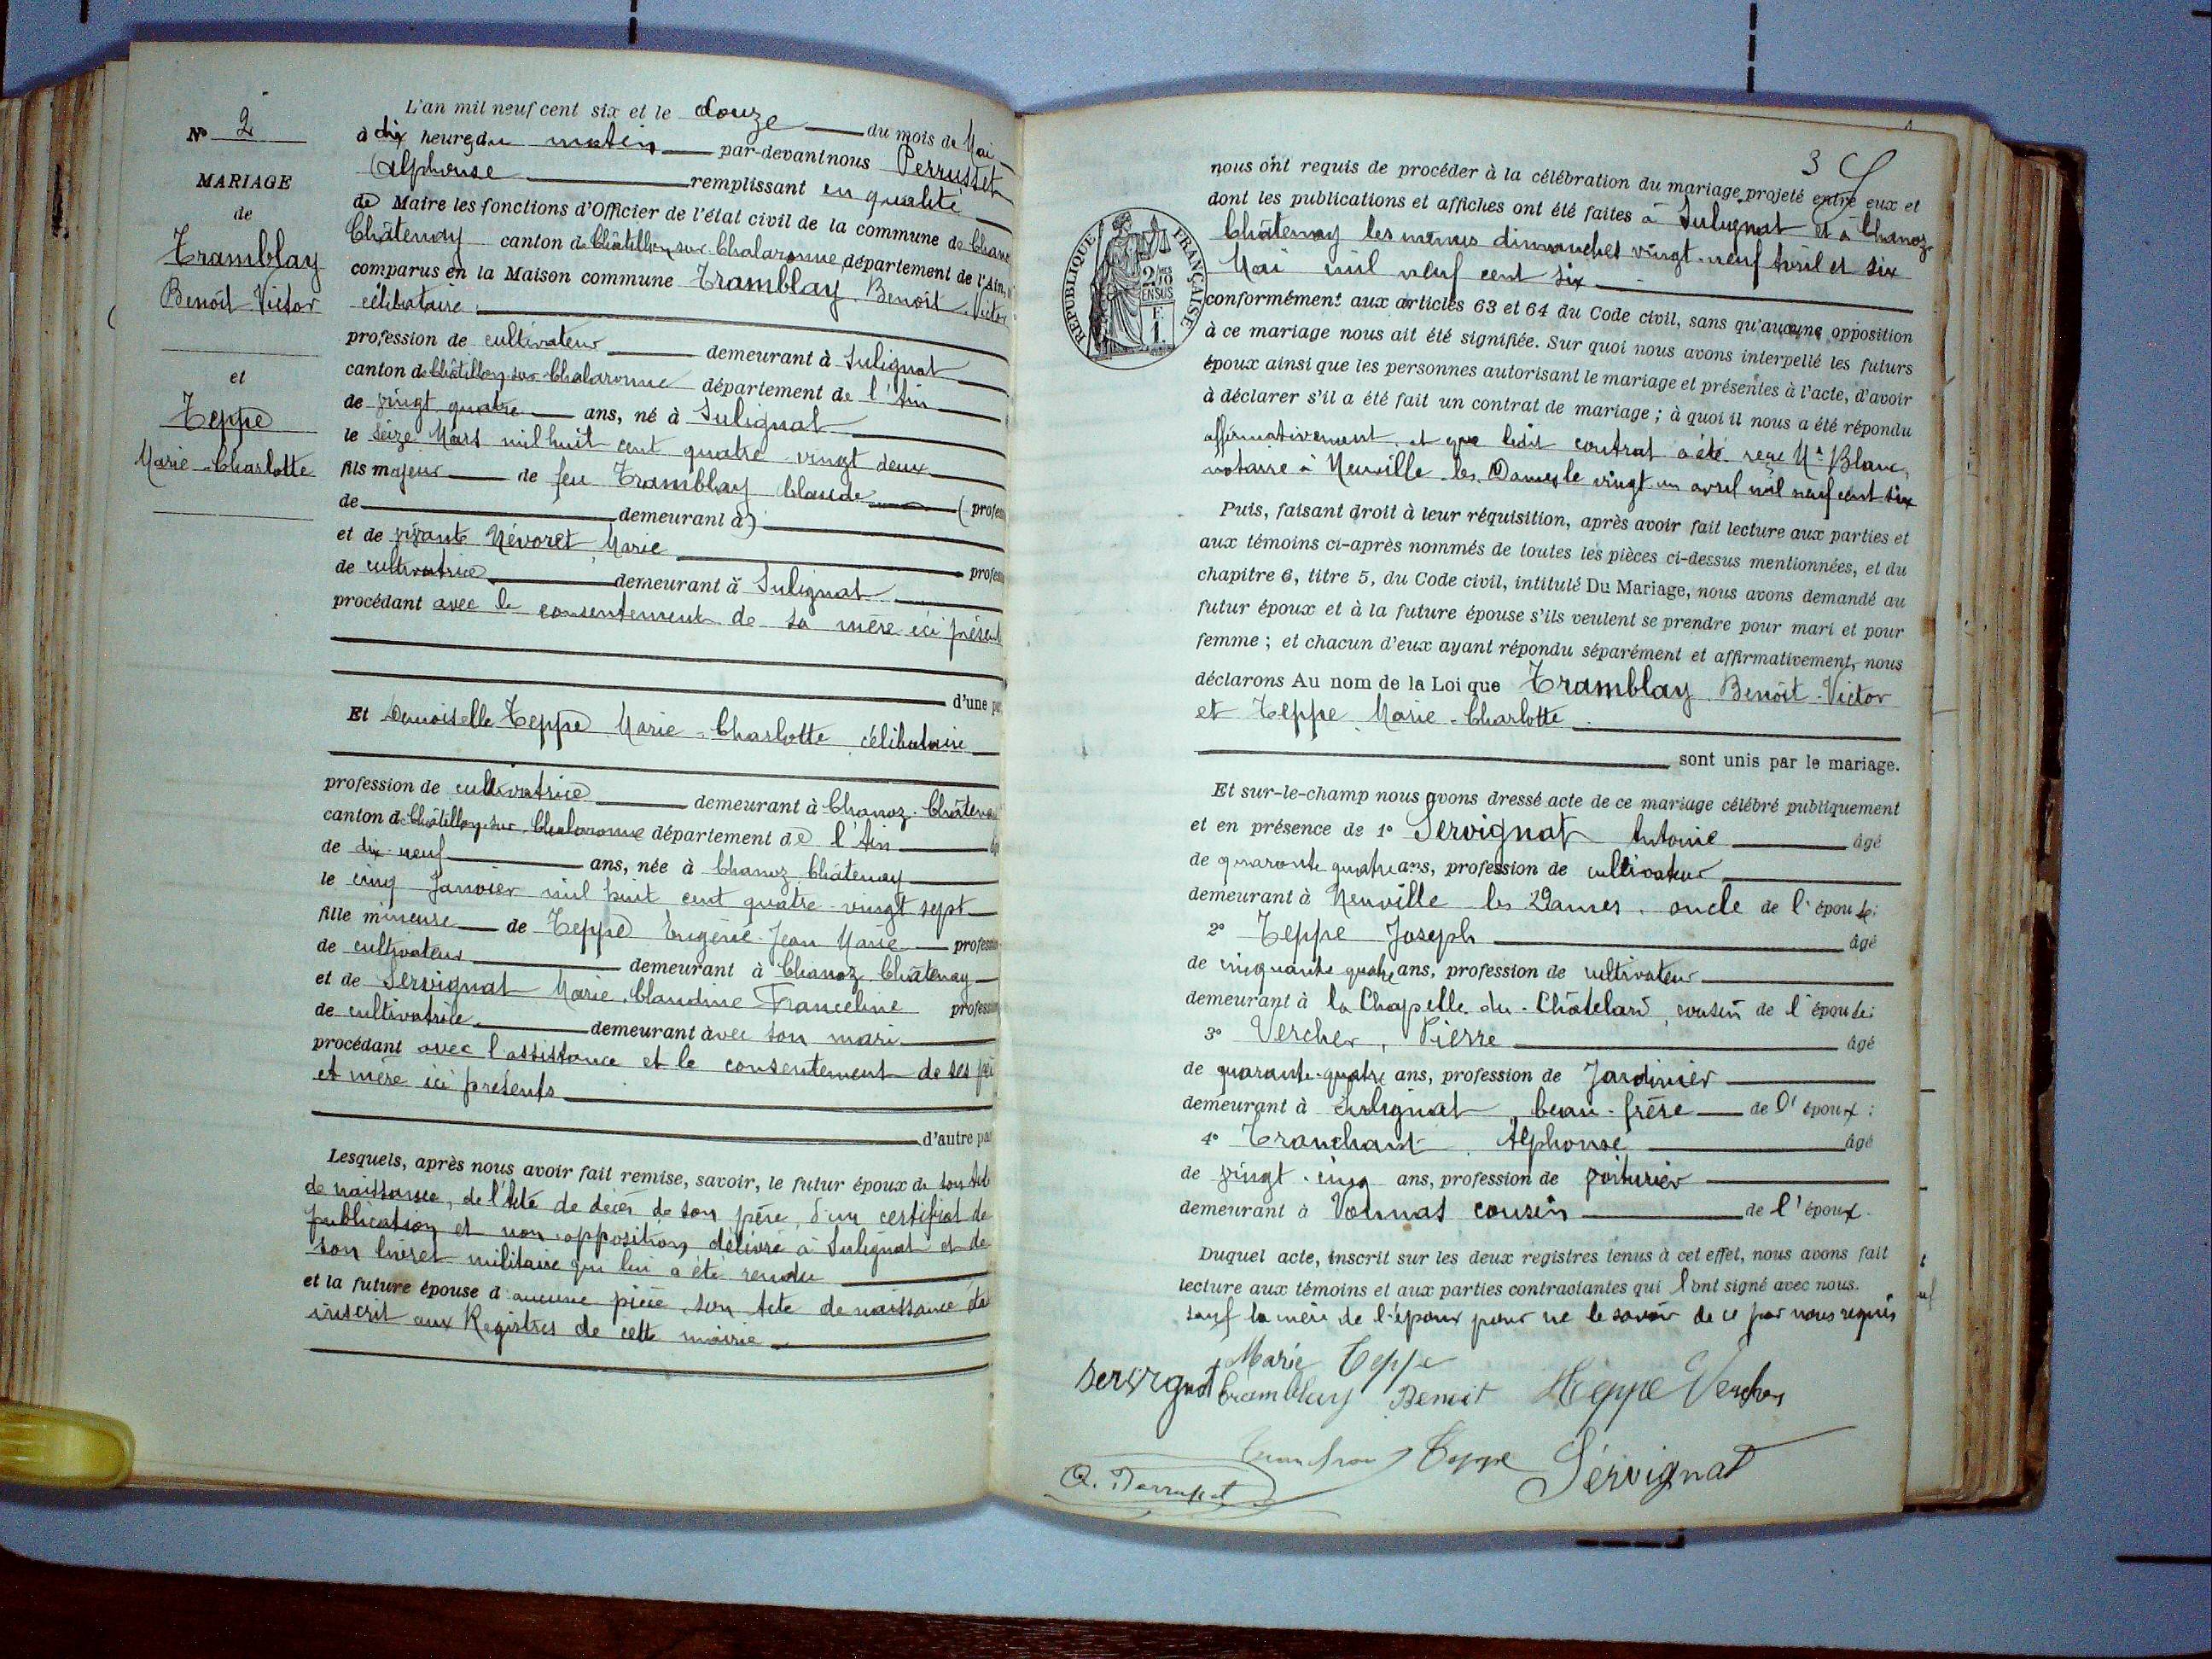 N° 2
MARIAGE
de
Tramblay
Benoît Victor
et
Teppe
Marie-Charlotte
L'an mil neuf cent six et le douze du mois de Mai
à dix heures du matin par-devant nous Perrusset
Alphonse remplissant en qualité
de Maire les fonctions d'Officier de l'état civil de la commune de Chanoz
Châtenay canton de Châtillon sur Chalaronne département de l'Ain,
comparus en la Maison commune Tramblay Benoît Victor
célibataire
profession de cultivateur demeurant à Sulignat
canton de Châtillon sur Chalaronne département de l'Ain
de vingt quatre ans, né à Sulignat
le seize Mars mil huit cent quatre-vingt deux
fils majeur de feu Tramblay Claude (profess
de demeurant à)
et de vivante Névoret Marie profess
de cultivatrice demeurant à Sulignat
procédant avec le consentement de sa mère ici présente
d'une pa
Et Demoiselle Teppe Marie-Charlotte célibataire
profession de cultivatrice demeurant à Chanoz-Châtenay
canton de Châtillon-sur-Chalaronne département de l'Ain
de dix-neuf ans, née à Chanoz Châtenay
le cinq Janvier mil huit cent quatre-vingt sept
fille mineure de Teppe Eugène Jean Marie profession
de cultivateur demeurant à Chanoz Châtenay
et de Servignat Marie Claudine Franceline profession
de cultivatrice demeurant avec son mari
procédant avec l'assistance et le consentement de ses père
et mère ici présents
d'autre par
Lesquels, après nous avoir fait remise, savoir, le futur époux de son Acte
de naissance, de l'Acte de décès de son père, d'un certificat de
publication et non-opposition délivré à Sulignat et de
son livret militaire qui lui a été rendu
et la future épouse d'aucune pièce, son Acte de naissance étant
inscrit aux Registres de cette mairie
3
RÉPUBLIQUE FRANÇAISE
2/10
EN SUS
F.
1.
nous ont requis de procéder à la célébration du mariage projeté entre eux et
dont les publications et affiches ont été faites à Sulignat et à Chanoz-
Châtenay les mêmes dimanches vingt-neuf Avril et six
Mai mil neuf cent six
conformément aux articles 63 et 64 du Code civil, sans qu'aucune opposition
à ce mariage nous ait été signifiée. Sur quoi nous avons interpellé les futurs
époux ainsi que les personnes autorisant le mariage et présentes à l'acte, d'avoir
à déclarer s'il a été fait un contrat de mariage ; à quoi il nous a été répondu
affirmativement, et que ledit contrat a été reçu Me Blanc,
notaire à Neuville les Dames le vingt un avril mil neuf cent six
Puis, faisant droit à leur réquisition, après avoir fait lecture aux parties et
aux témoins ci-après nommés de toutes les pièces ci-dessus mentionnées, et du
chapitre 6, titre 5, du Code civil, intitulé Du Mariage, nous avons demandé au
futur époux et à la future épouse s'ils veulent se prendre pour mari et pour
femme ; et chacun d'eux ayant répondu séparément et affirmativement, nous
déclarons Au nom de la Loi que Tramblay Benoît-Victor
et Teppe Marie-Charlotte
sont unis par le mariage.
Et sur-le-champ nous avons dressé acte de ce mariage célébré publiquement
et en présence de 1° Servignat Antoine âgé
de quarante quatre ans, profession de cultivateur
demeurant à Neuville les Dames, oncle de l'épouse;
2° Teppe Joseph âgé
de cinquante quatre ans, profession de cultivateur
demeurant à la Chapelle-du-Châtelard, cousin de l'épouse;
3° Vercher, Pierre âgé
de quarante-quatre ans, profession de Jardinier
demeurant à Sulignat, beau-frère de l'époux;
4° Tranchant Alphonse âgé
de vingt-cinq ans, profession de voiturier
demeurant à Vonnas cousin de l'époux.
Duquel acte, inscrit sur les deux registres tenus à cet effet, nous avons fait
lecture aux témoins et aux parties contractantes qui l'ont signé avec nous.
sauf la mère de l'époux pour ne le savoir de ce par nous requis
Marie Teppe
Servignat Tramblay Benoit Teppe Vercher
Teppe Servignat
A. Perrusset